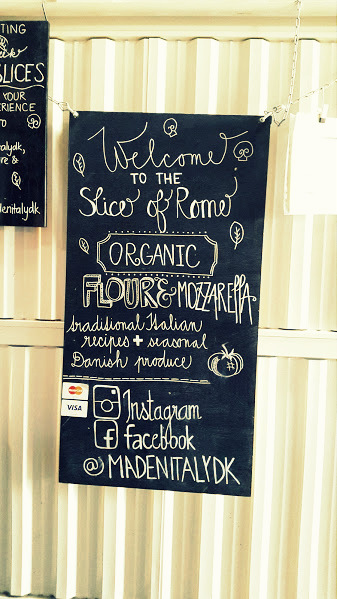 TING
&
SLICES
YOUR
ERIENCE
TO
alydk,
re &
adenitalydk
Welcome
TO THE
Slice of Rome
ORGANIC
FLOUR & MOZZARELLA
traditional Italian
recipes + seasonal
Danish produce
VISA
Instagram
f facebook
@MADENITALYDK